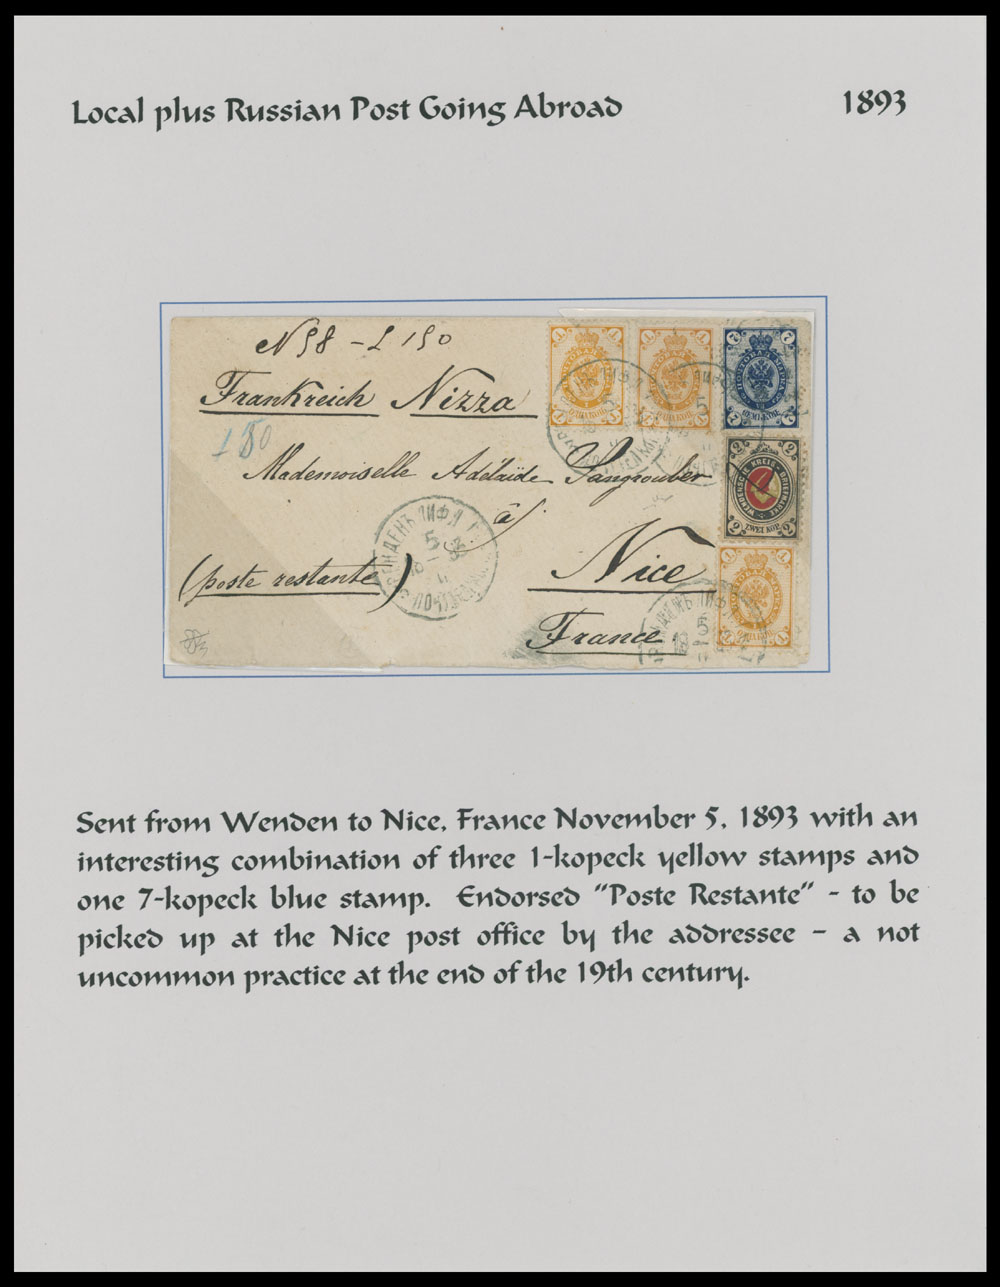 Local plus Russian Post Going Abroad 1893
Frankreich Nizza
150
Mademoiselle Adélaïde
à
Nice
(poste restante)
France
7 7
7 СЕМЬ КОП. 7
2 2
WENDENSCHE KREIS-BRIEFMARKE
2 ZWEI KOP. 2
1 1
1 1
5
Sent from Wenden to Nice, France November 5, 1893 with an
interesting combination of three 1-kopeck yellow stamps and
one 7-kopeck blue stamp. Endorsed "Poste Restante" - to be
picked up at the Nice post office by the addressee - a not
uncommon practice at the end of the 19th century.